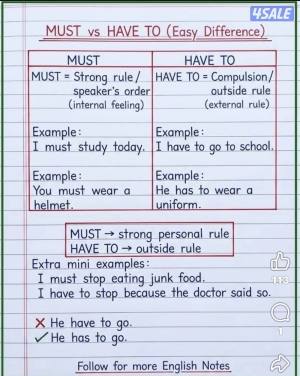 4SALE
MUST vs HAVE TO (Easy Difference)
MUST
HAVE TO
MUST = Strong rule /
speaker's order
(internal feeling)
HAVE TO = Compulsion/
outside rule
(external rule)
Example:
I must study today.
Example:
I have to go to school.
Example:
You must wear a
helmet.
Example:
He has to wear a
uniform.
MUST → strong personal rule
HAVE TO → outside rule
Extra mini examples:
I must stop eating junk food.
I have to stop because the doctor said so.
✗ He have to go.
✓ He has to go.
Follow for more English Notes
113
1